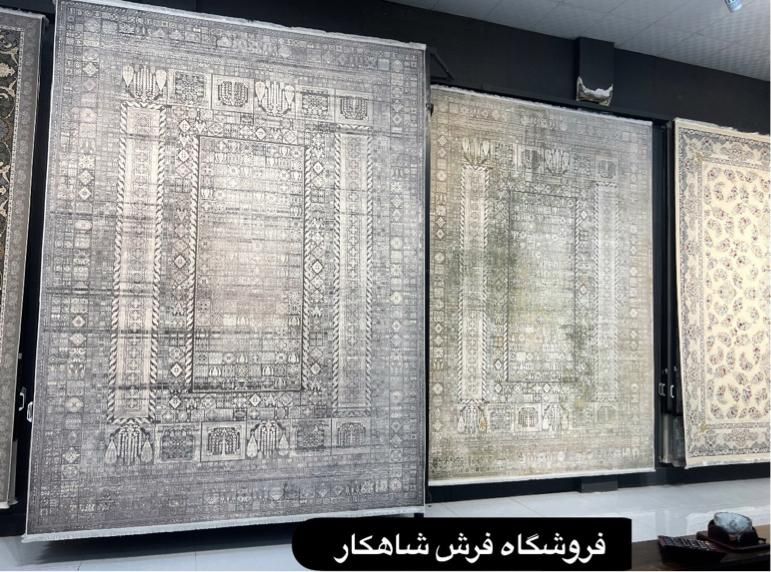 فروشگاه فرش شاهکار